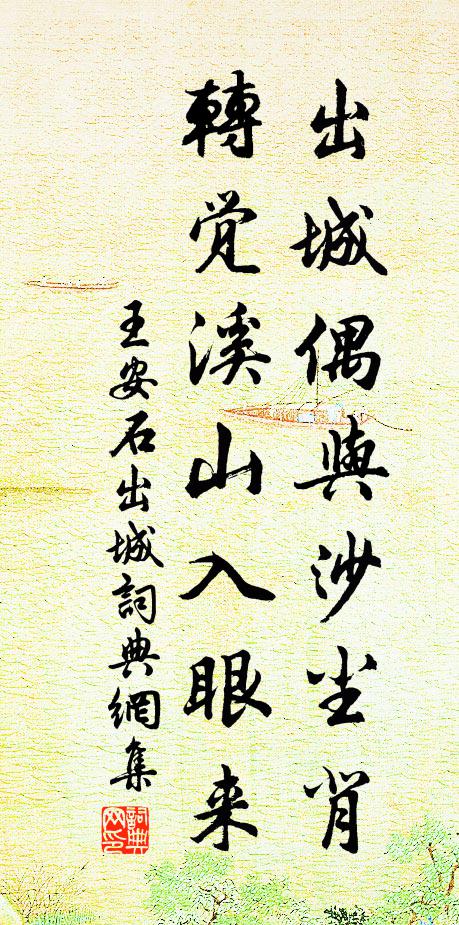 出城偶與沙尘背
轉觉溪山入眼来
王安石出城詞典網集
詞典网印